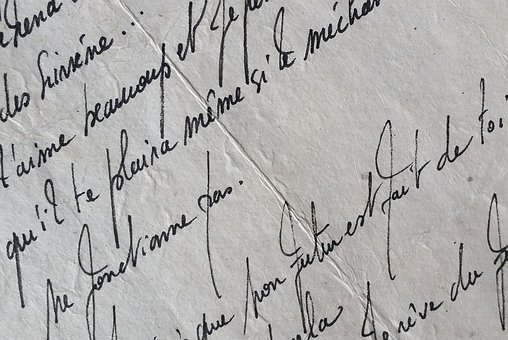 des
t'aime beaucoup et je
qu'il te plaira même si le
ne fonctionne pas.
que mon futur est fait de toi
rêve du